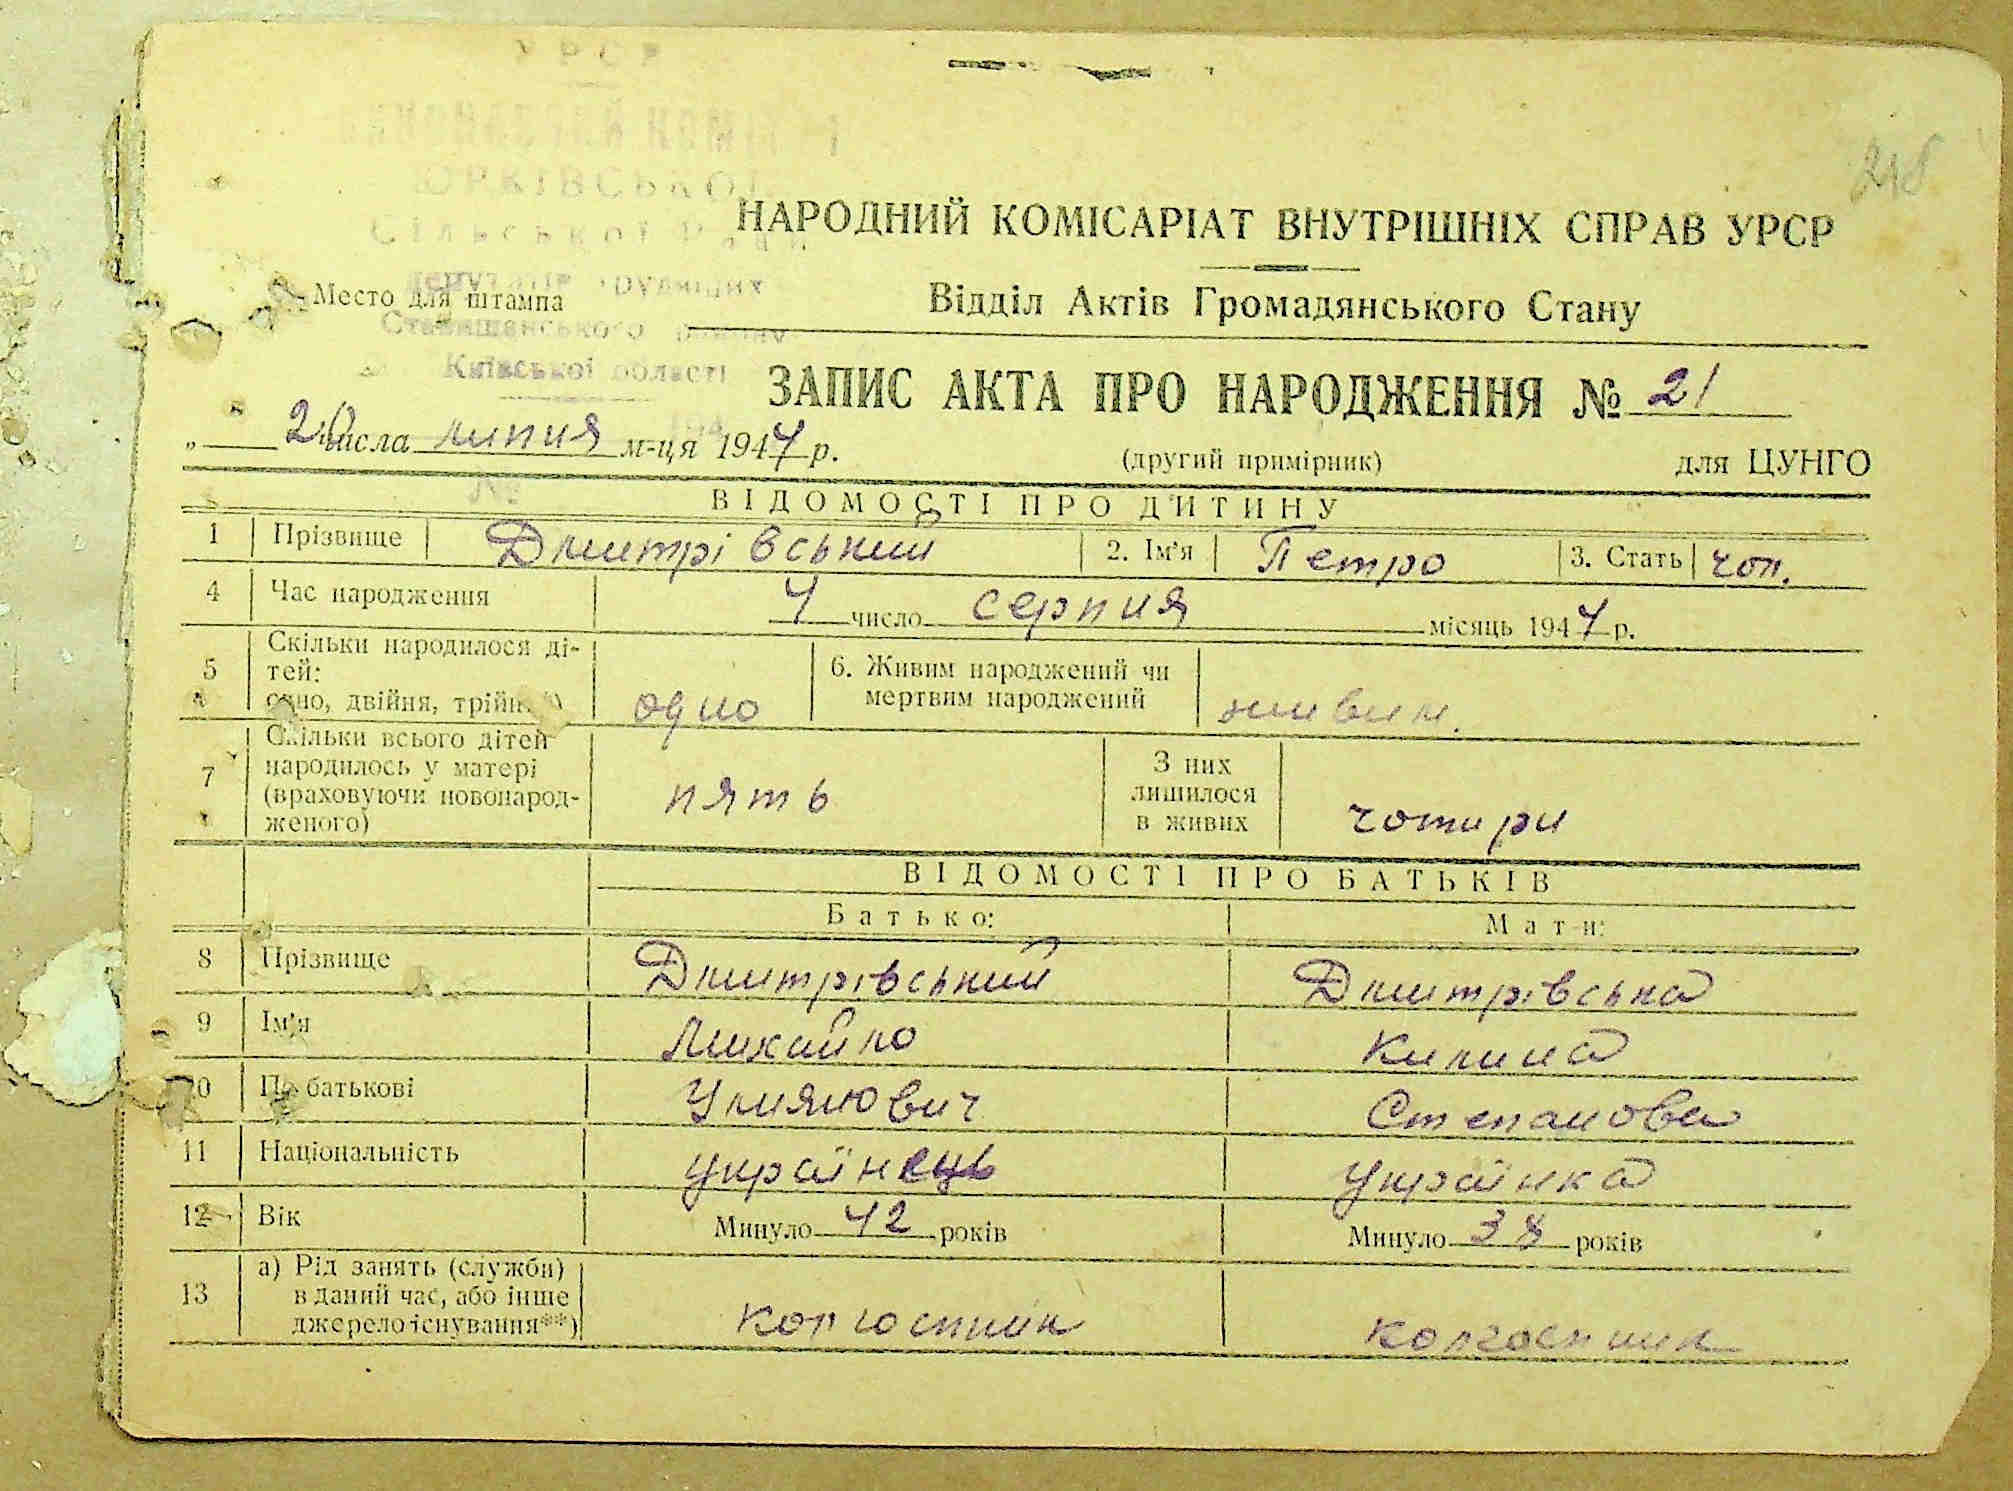 УРСР
ВИКОНАВЧИЙ КОМІТЕТ
ЮРКІВСЬКОЇ
Сільської Ради
депутатів трудящих
Ставищанського району
Київської області
218
НАРОДНИЙ КОМІСАРІАТ ВНУТРІШНІХ СПРАВ УРСР
Место для штампа
Відділ Актів Громадянського Стану
ЗАПИС АКТА ПРО НАРОДЖЕННЯ № 21
„ 20 числа липня м-ця 1947 р.
(другий примірник) для ЦУНГО
ВІДОМОСТІ ПРО ДИТИНУ
1 Прізвище Дмитрівський 2. Ім'я Петро 3. Стать чол.
4 Час народження 7 число серпня місяць 1947 р.
5 Скільки народилося ді-
тей:
одно, двійня, трійня*) одно
6. Живим народжений чи
мертвим народжений живим.
7 Скільки всього дітей
народилось у матері
(враховуючи новонарод-
женого) пять
З них
лишилося
в живих чотири
ВІДОМОСТІ ПРО БАТЬКІВ
Батько: Мати:
8 Прізвище Дмитрівський Дмитрівська
9 Ім'я Михайло Килина
10 По батькові Улянович Степанова
11 Національність українець Українка
12 Вік Минуло 42 років Минуло 38 років
13 а) Рід занять (служби)
в даний час, або інше
джерело існування**) колгоспник колгоспник